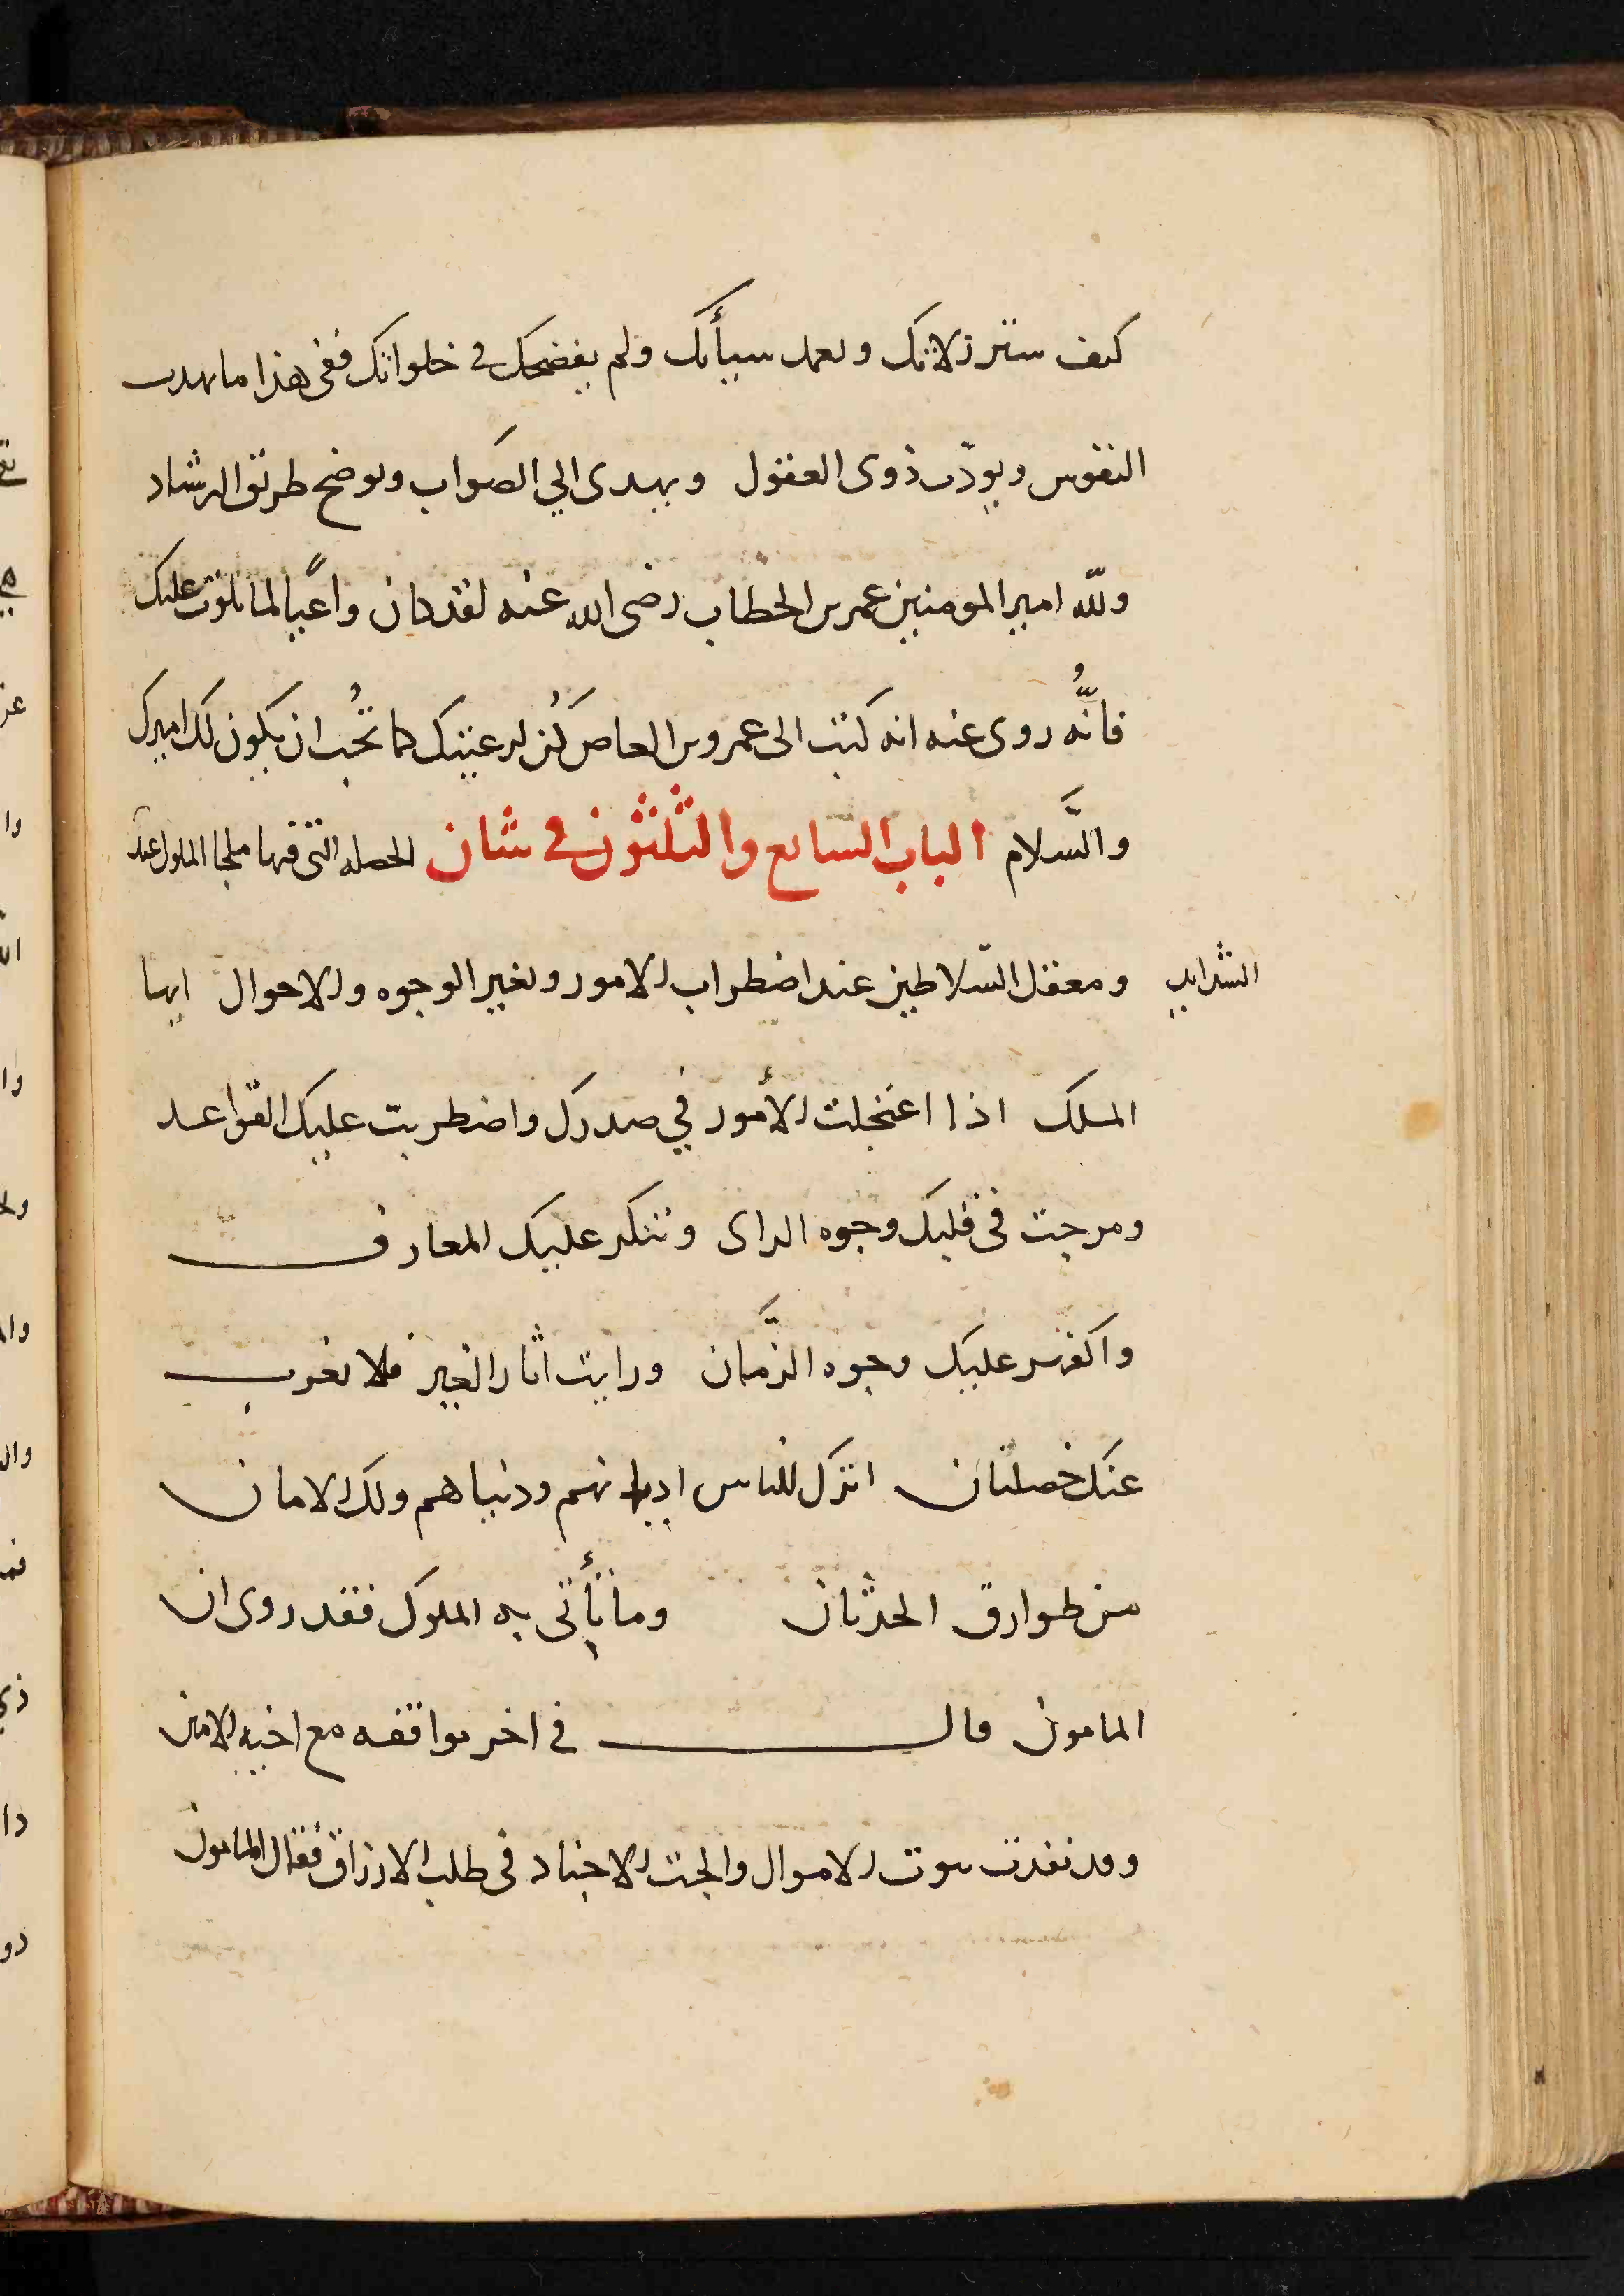 كيف ستر زلاتك وتغمد سيأتك ولم يفضحك في خلواتك ففي هذا ما يهذب
النفوس ويودّب ذوى العقول ويهدى الي الصَواب ويوضح طريق الرشاد
وللّه امير المومنين عمر بن الخطاب رضى الله عنه لقد كان واعيًا لما تلوت عليك
فانَّه روى عنه انه كتب الى عمرو بن العاص كُن لرعيتك كما تُحب ان يكون لك اميرك
والسَّلام الباب السابع والثلثون في شان الخصله التى فيها ملجا الملوك عند
الشدايد ومعقل السّلاطين عند اضطراب الامور وتغير الوجوه والاحوال ايها
الملك اذا اعتجلت الأمور في صدرك واضطربت عليك القواعد
ومرجت فى قلبك وجوه الراى وتنكر عليك المعارف
واكفهر عليك وجوه الزَّمان ورايت اثار الغير فلا تغرب
عنك خصلتان اترك للناس اديانهم ودنياهم ولك الامان
من طوارق الحدثان وما تأتى به الملوك فقد روى ان
المامون قال في اخر مواقفه مع اخيه الامين
وقد نفدت بيوت الاموال والحت الاجناد فى طلب الارزاق فقال المامون